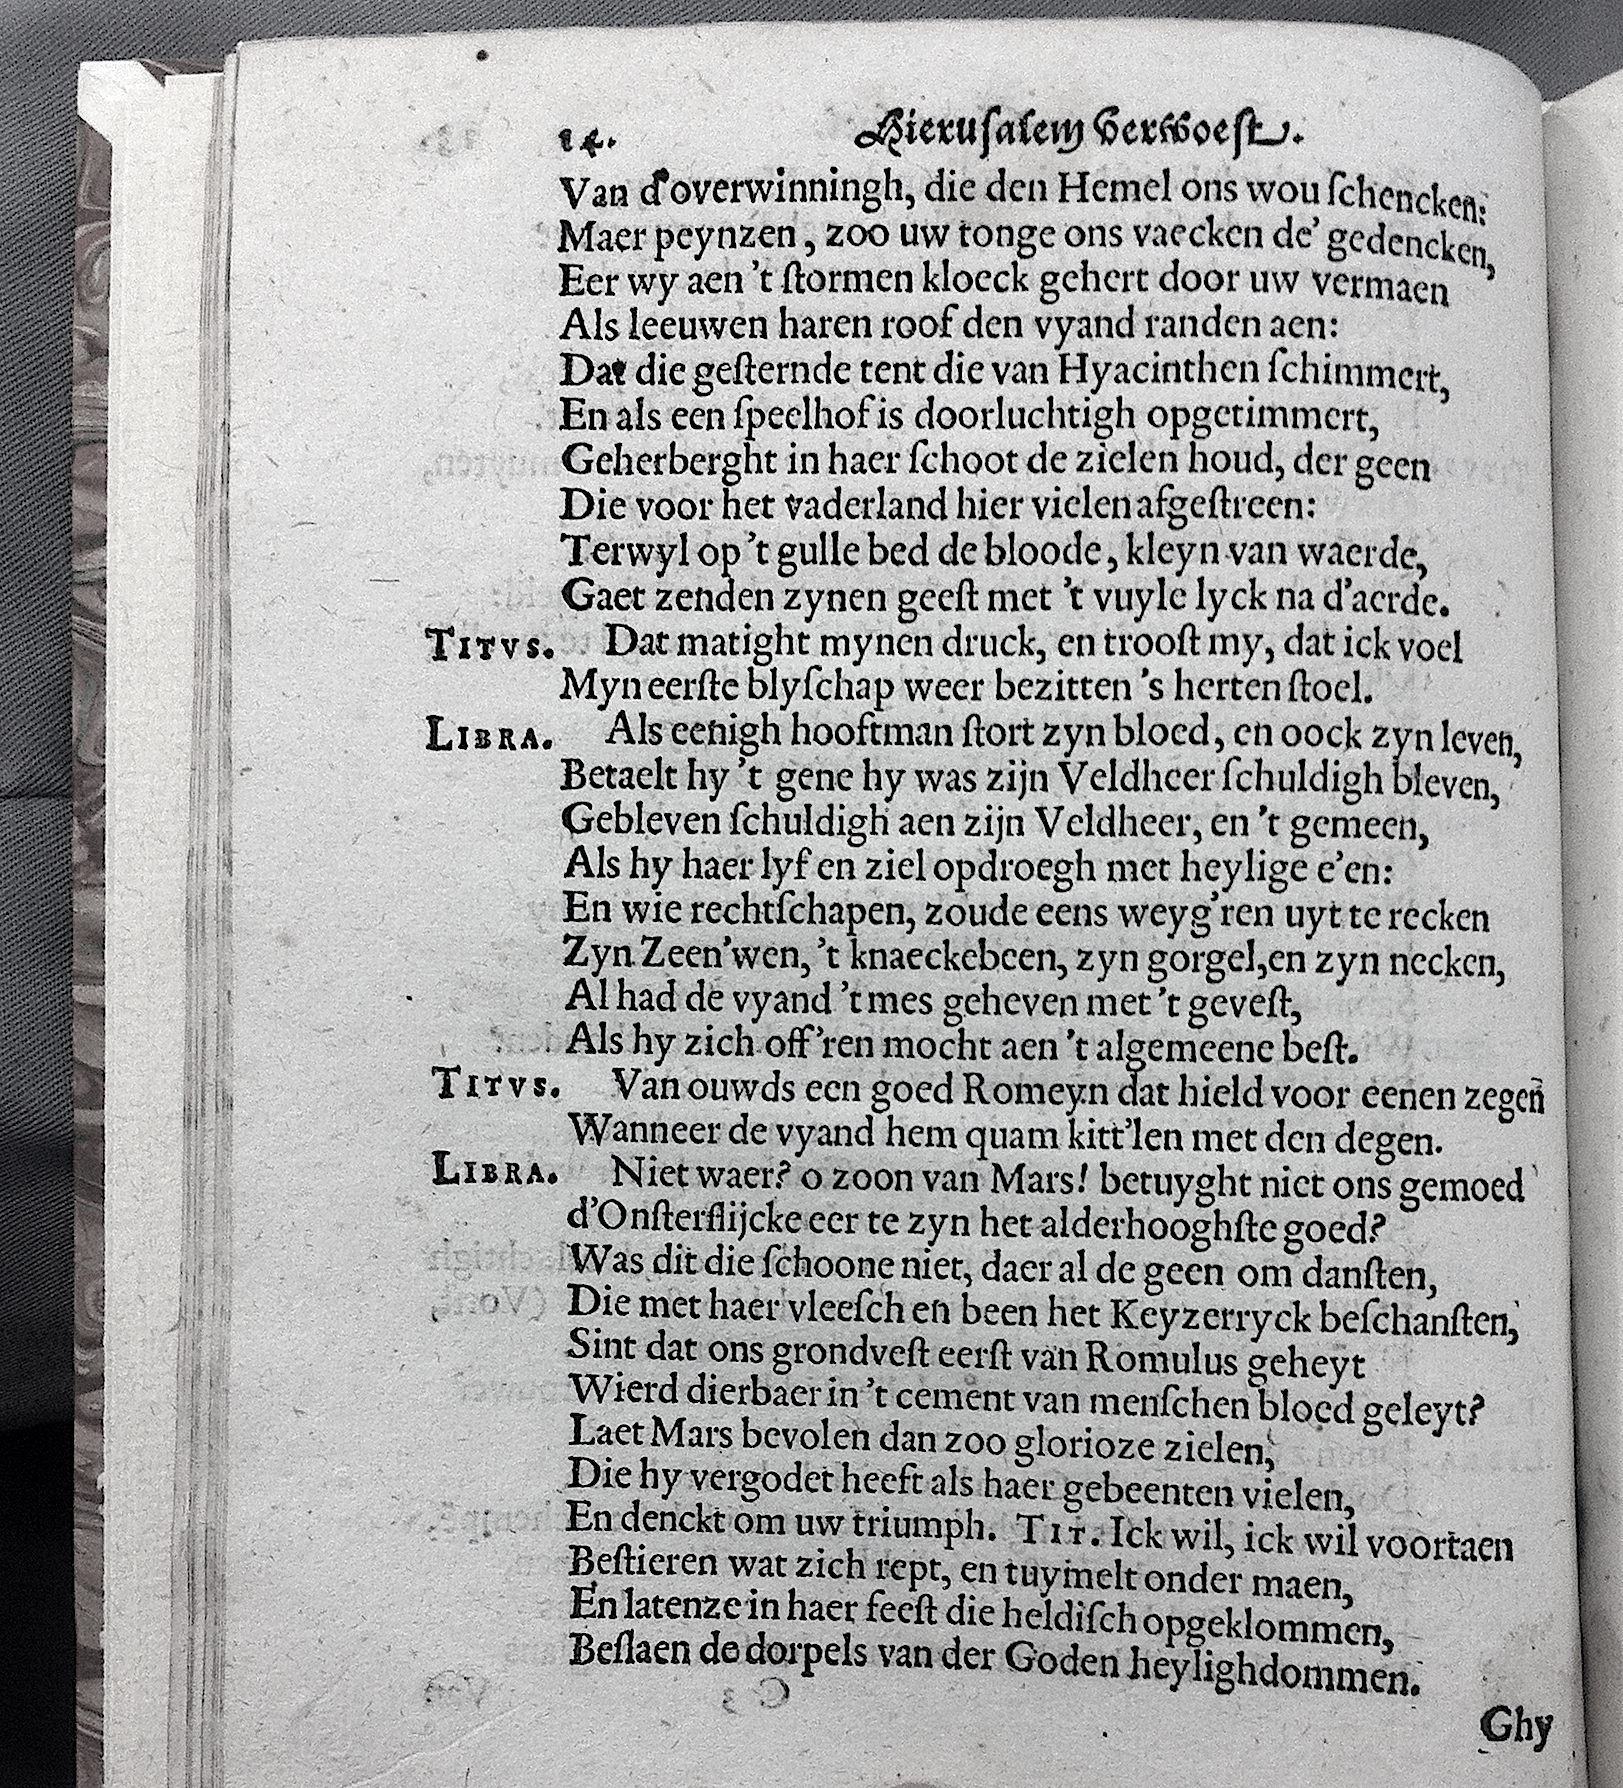 14. Hierusalem Verwoest.
Van d'overwinningh, die den Hemel ons wou ſchencken:
Maer peynzen, zoo uw tonge ons vaecken de' gedencken,
Eer wy aen 't ſtormen kloeck gehert door uw vermaen
Als leeuwen haren roof den vyand randen aen:
Dat die geſternde tent die van Hyacinthen ſchimmert,
En als een ſpeelhof is doorluchtigh opgetimmert,
Geherberght in haer ſchoot de zielen houd, der geen
Die voor het vaderland hier vielen afgeſtreen:
Terwyl op 't gulle bed de bloode, kleyn van waerde,
Gaet zenden zynen geeſt met 't vuyle lyck na d'aerde.
TITVS. Dat matight mynen druck, en trooſt my, dat ick voel
Myn eerſte blyſchap weer bezitten 's herten ſtoel.
LIBRA. Als eenigh hooftman ſtort zyn bloed, en oock zyn leven,
Betaelt hy 't gene hy was zijn Veldheer ſchuldigh bleven,
Gebleven ſchuldigh aen zijn Veldheer, en 't gemeen,
Als hy haer lyf en ziel opdroegh met heylige e'en:
En wie rechtſchapen, zoude eens weyg'ren uyt te recken
Zyn Zeen'wen, 't knaeckebeen, zyn gorgel, en zyn necken,
Al had de vyand 't mes geheven met 't geveſt,
Als hy zich off'ren mocht aen 't algemeene beſt.
TITVS. Van ouwds een goed Romeyn dat hield voor eenen zegen
Wanneer de vyand hem quam kitt'len met den degen.
LIBRA. Niet waer? o zoon van Mars! betuyght niet ons gemoed
d'Onſterflijcke eer te zyn het alderhooghſte goed?
Was dit die ſchoone niet, daer al de geen om danſten,
Die met haer vleeſch en been het Keyzerryck beſchanſten,
Sint dat ons grondveſt eerſt van Romulus geheyt
Wierd dierbaer in 't cement van menſchen bloed geleyt?
Laet Mars bevolen dan zoo glorioze zielen,
Die hy vergodet heeft als haer gebeenten vielen,
En denckt om uw triumph. TIT. Ick wil, ick wil voortaen
Beſtieren wat zich rept, en tuymelt onder maen,
En latenze in haer feeſt die heldiſch opgeklommen,
Beſlaen de dorpels van der Goden heylighdommen.
Ghy